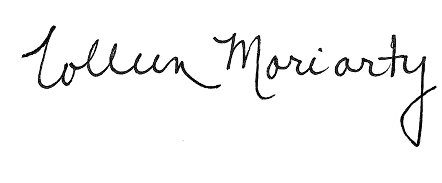 Colleen Moriarty